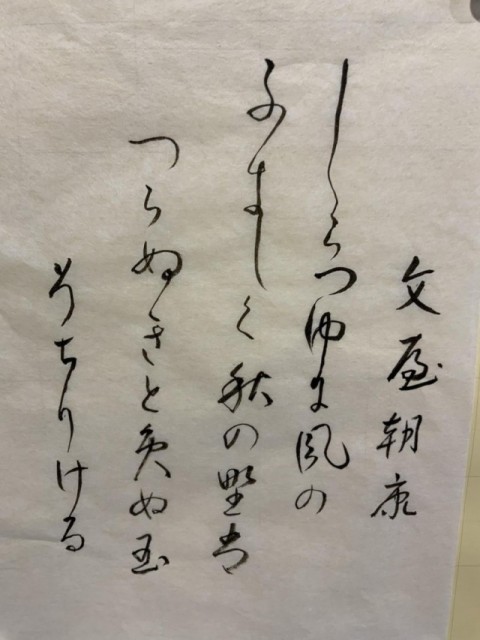 文屋朝康
しらつゆに風の
ふきしく秋の野は
つらぬきとめぬ玉
そちりける